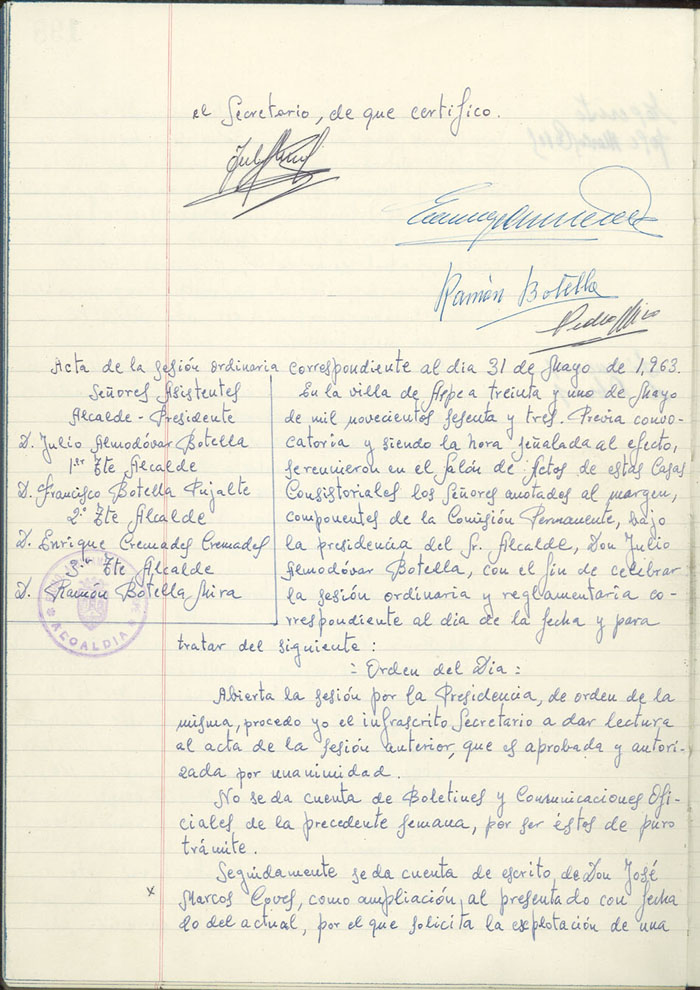 el Secretario, de que certifico.
Ramón Botella
Pedro Miró
Acta de la sesión ordinaria correspondiente al dia 31 de Mayo de 1,963.
Señores Asistentes
Alcalde-Presidente
D. Julio Almodóvar Botella
1er Tte Alcalde
D. Francisco Botella Pujalte
2º Tte Alcalde
D. Enrique Cremades Cremades
3er Tte Alcalde
D. Ramón Botella Mira
ALCALDIA
En la villa de Aspe a treinta y uno de Mayo
de mil novecientos sesenta y tres. Previa convo-
catoria y siendo la hora señalada al efecto,
se reunieron en el Salón de Actos de estas Casas
Consistoriales los Señores anotados al margen,
componentes de la Comisión Permanente, bajo
la presidencia del Sr. Alcalde, Don Julio
Almodóvar Botella, con el fin de celebrar
la sesión ordinaria y reglamentaria co-
rrespondiente al dia de la fecha y para
tratar del siguiente:
= Orden del Dia:
Abierta la sesión por la Presidencia, de orden de la
misma, procedo yo el infrascrito Secretario a dar lectura
al acta de la sesión anterior, que es aprobada y autori-
zada por unanimidad.
No se da cuenta de Boletines y Comunicaciones Ofi-
ciales de la precedente semana, por ser éstos de puro
trámite.
Seguidamente se da cuenta de escrito, de Don José
x Marcos Coves, como ampliación al presentado con fecha
do del actual, por el que solicita la explotación de una